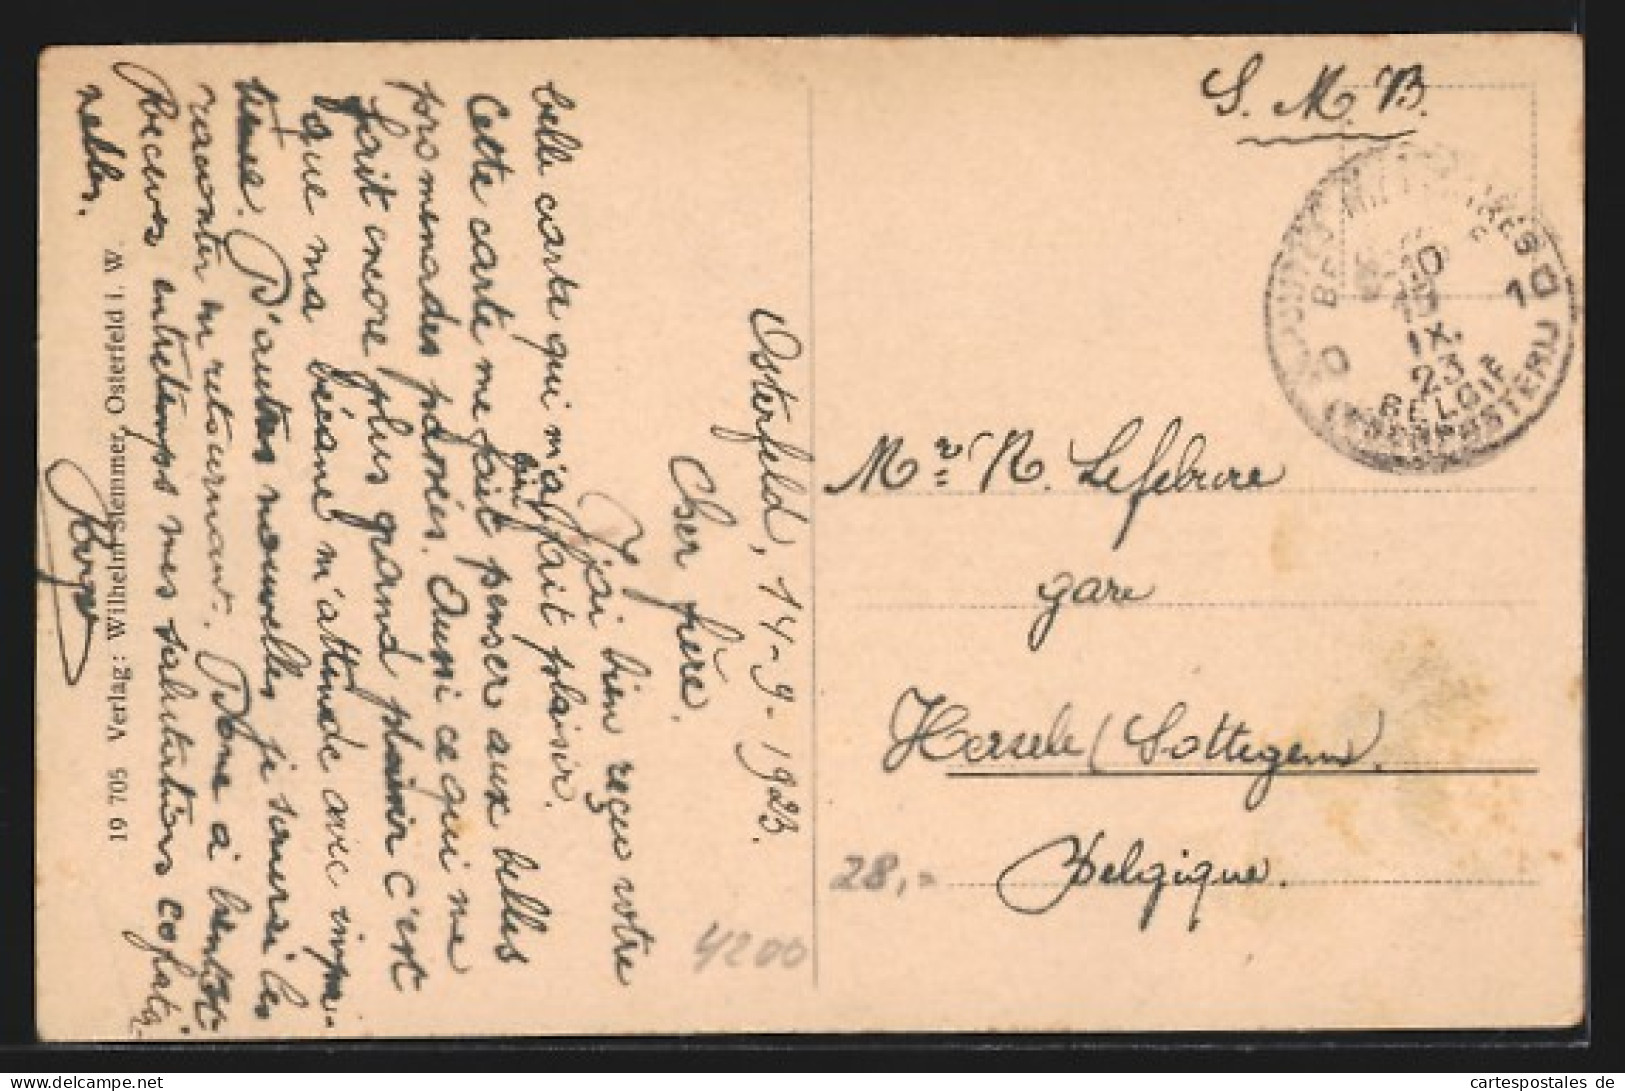 S. M. B.
POSTES MILITAIRES
10
IX.
23
BELGIE
10
LEGERPOSTERIJ
Mr R. Lefebvre
gare
Hersele (Sottegem)
Belgique.
28,=
4200
Osterfeld, 14-9-1923.
Cher frère.
J'ai bien reçu votre
belle carte qui m'a fait plaisir.
Cette carte me fait penser aux belles
promenades passées. Aussi ce qui me
fait encore plus grand plaisir c'est
que ma bécane m'attende avec impa-
tience. D'autres nouvelles je saurai les
raconter en retournant. Donc à bientôt
Recevez entretemps mes salutations
19 705 Verlag: Wilhelm Stemmer, Osterfeld i. W.
cartespostales de